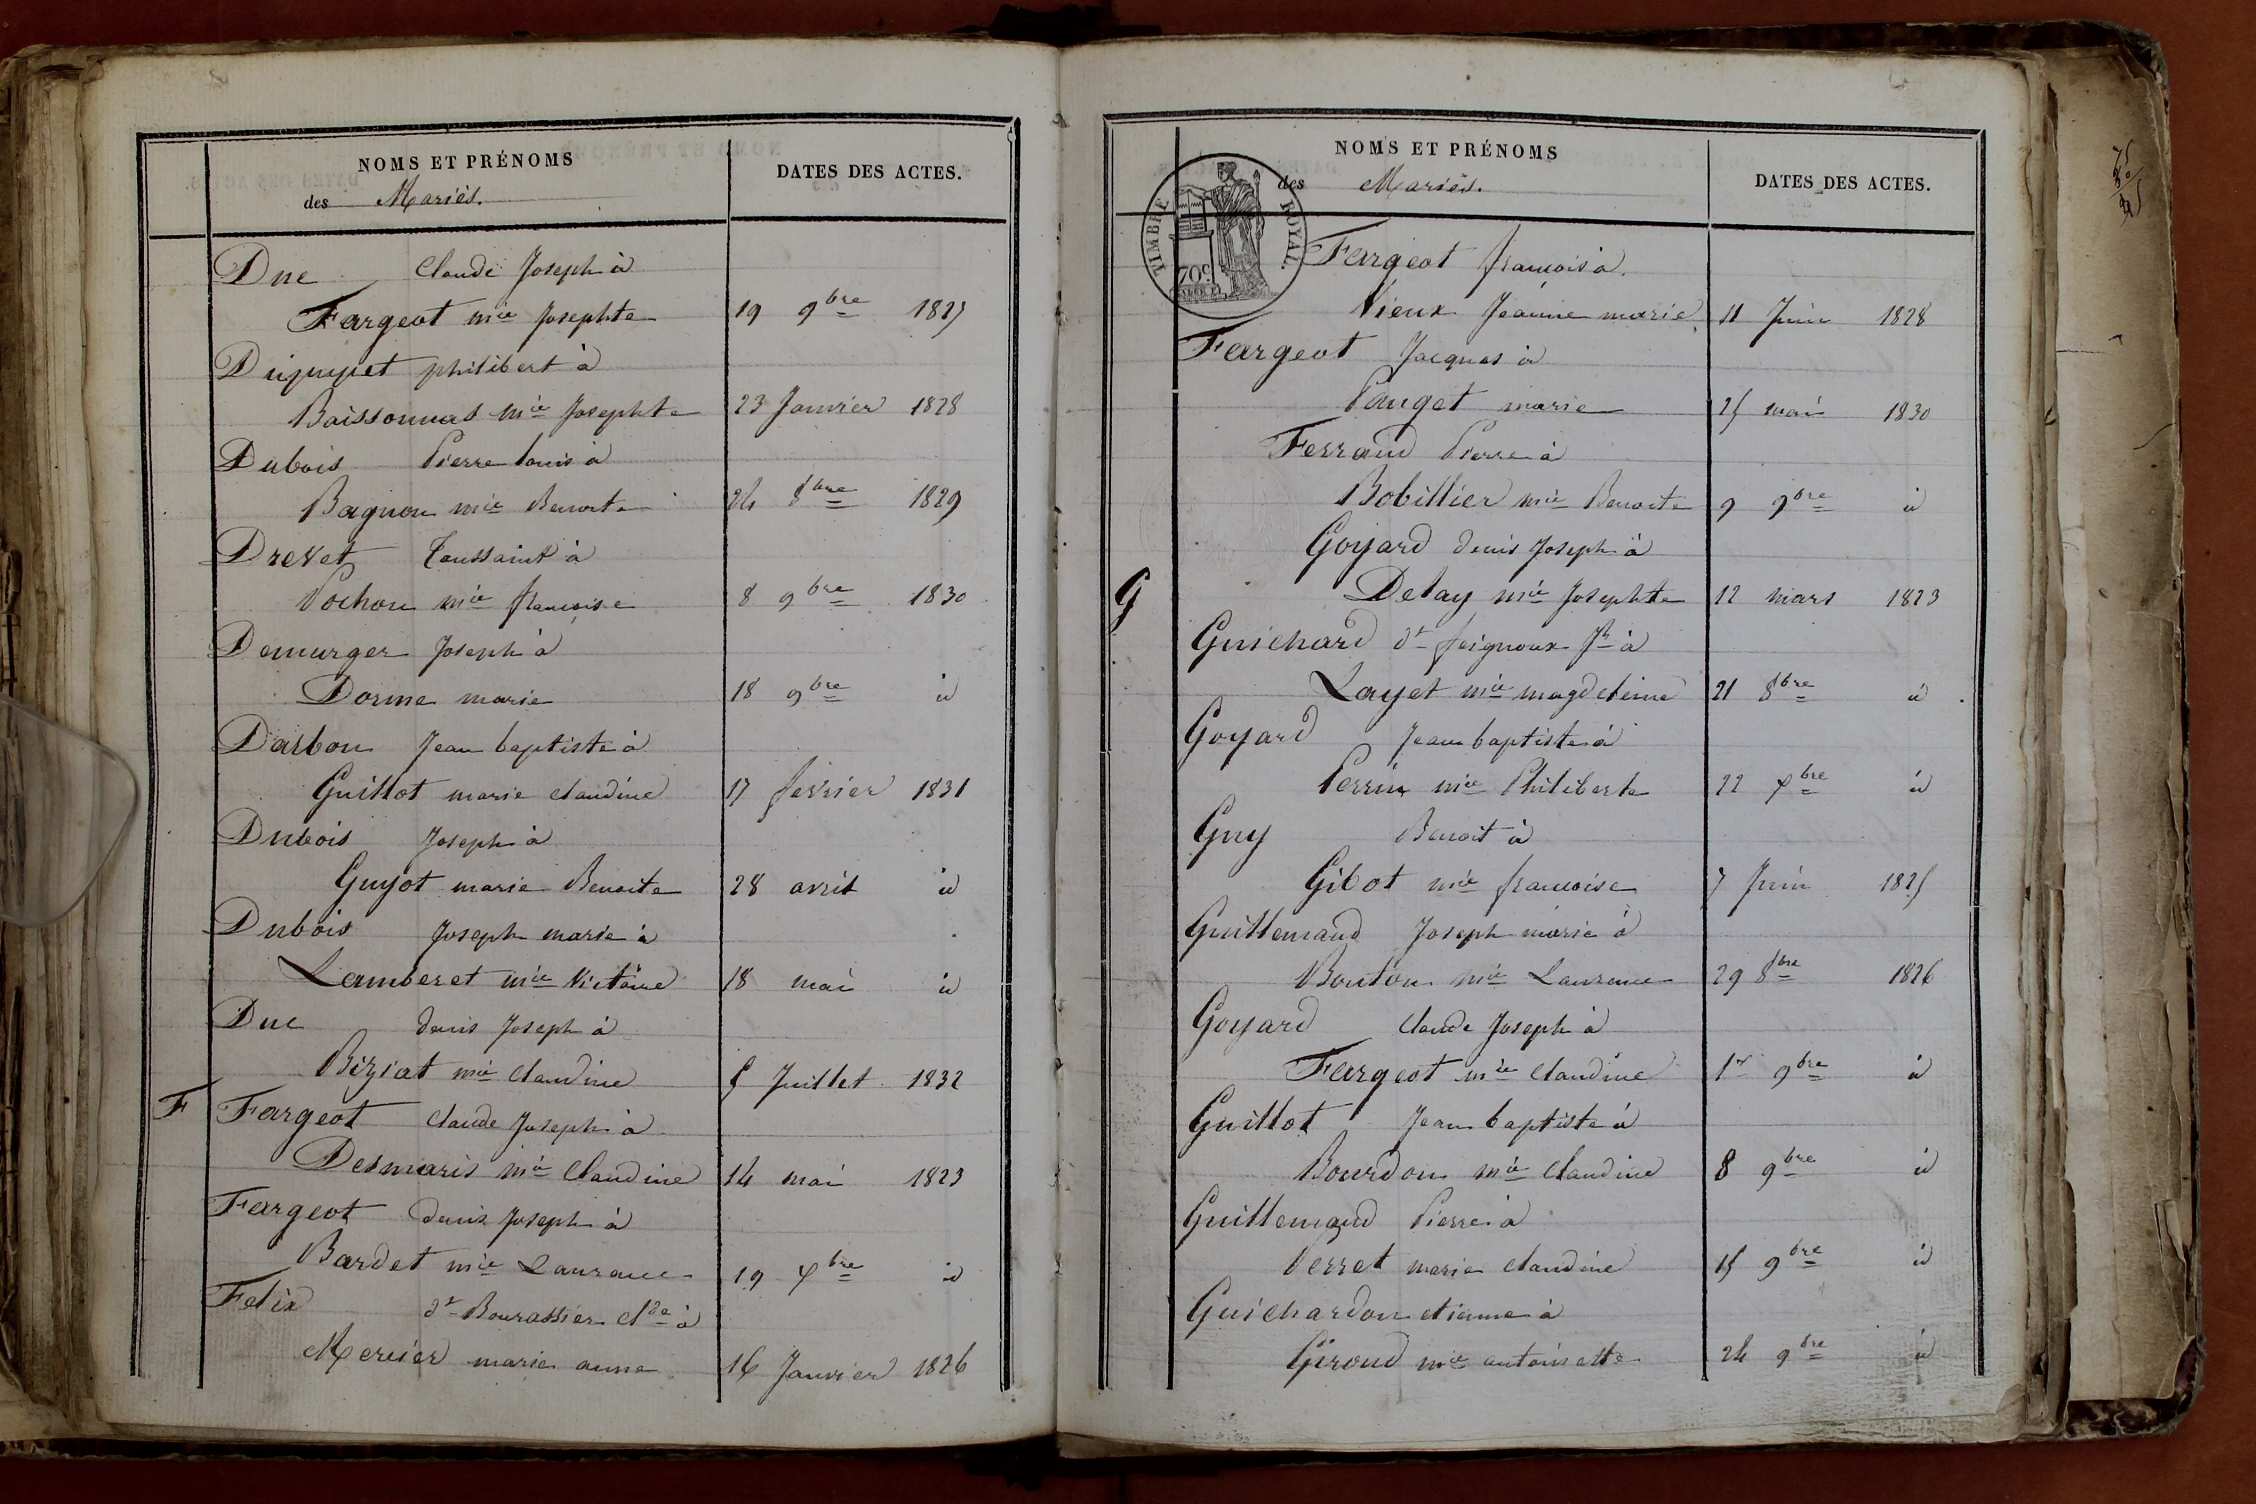 NOMS ET PRÉNOMS
DATES DES ACTES.
des Mariés.
Duc Claude Joseph à
Fargeot mie Josephte 19 9bre 1827
Dupupet philibert à
Boissonnas mie Josephte 23 Janvier 1828
Dubois Pierre Louis à
Bagnon mie Benoite 24 8bre 1829
Drevet Toussaint à
Pochon mie françoise 8 9bre 1830
Demurger Joseph à
Dorme marie 18 9bre id
Darbon Jean baptiste à
Guillot marie claudine 17 février 1831
Dubois Joseph à
Guyot marie Benoite 28 avril id
Dubois Joseph marie à
Lamberet mie Victoire 18 mai id
Duc denis Joseph à
Biziat mie claudine 5 Juillet 1832
F Fargeot Claude Joseph à
Desmaris mie Claudine 14 mai 1823
Fargeot denis Joseph à
Bardet mie Laurance 19 Xbre id
Felix dt Bourassier Cl de à
Mercier marie anne 16 Janvier 1826
NOMS ET PRÉNOMS
DATES DES ACTES.
des Mariés.
TIMBRE ROYAL.
70c
Fargeot françois à
Vieux Jeanne marie 11 Juin 1828
Fargeot Jacques à
Pauget marie 25 mai 1830
Ferraud Pierre à
Bobillier mie Benoite 9 9bre id
Goyard denis Joseph à
G Delay mie Josephte 12 mars 1823
Guichard dt Jh à
Layet mie magdeleine 21 8bre id
Goyard Jean baptiste à
Perrin mie Philiberte 22 Xbre id
Guy Benoit à
Gibot mie françoise 7 Juin 1825
Guillemaud Joseph marie à
Bouton mie Laurence 29 8bre 1826
Goyard Claude Joseph à
Fargeot mie claudine 1er 9bre id
Guillot Jean baptiste à
Bourdon mie Claudine 8 9bre id
Guillemaud Pierre à
Perret marie claudine 15 9bre id
Guichardon etienne à
Giroud mie antoinette 24 9bre id